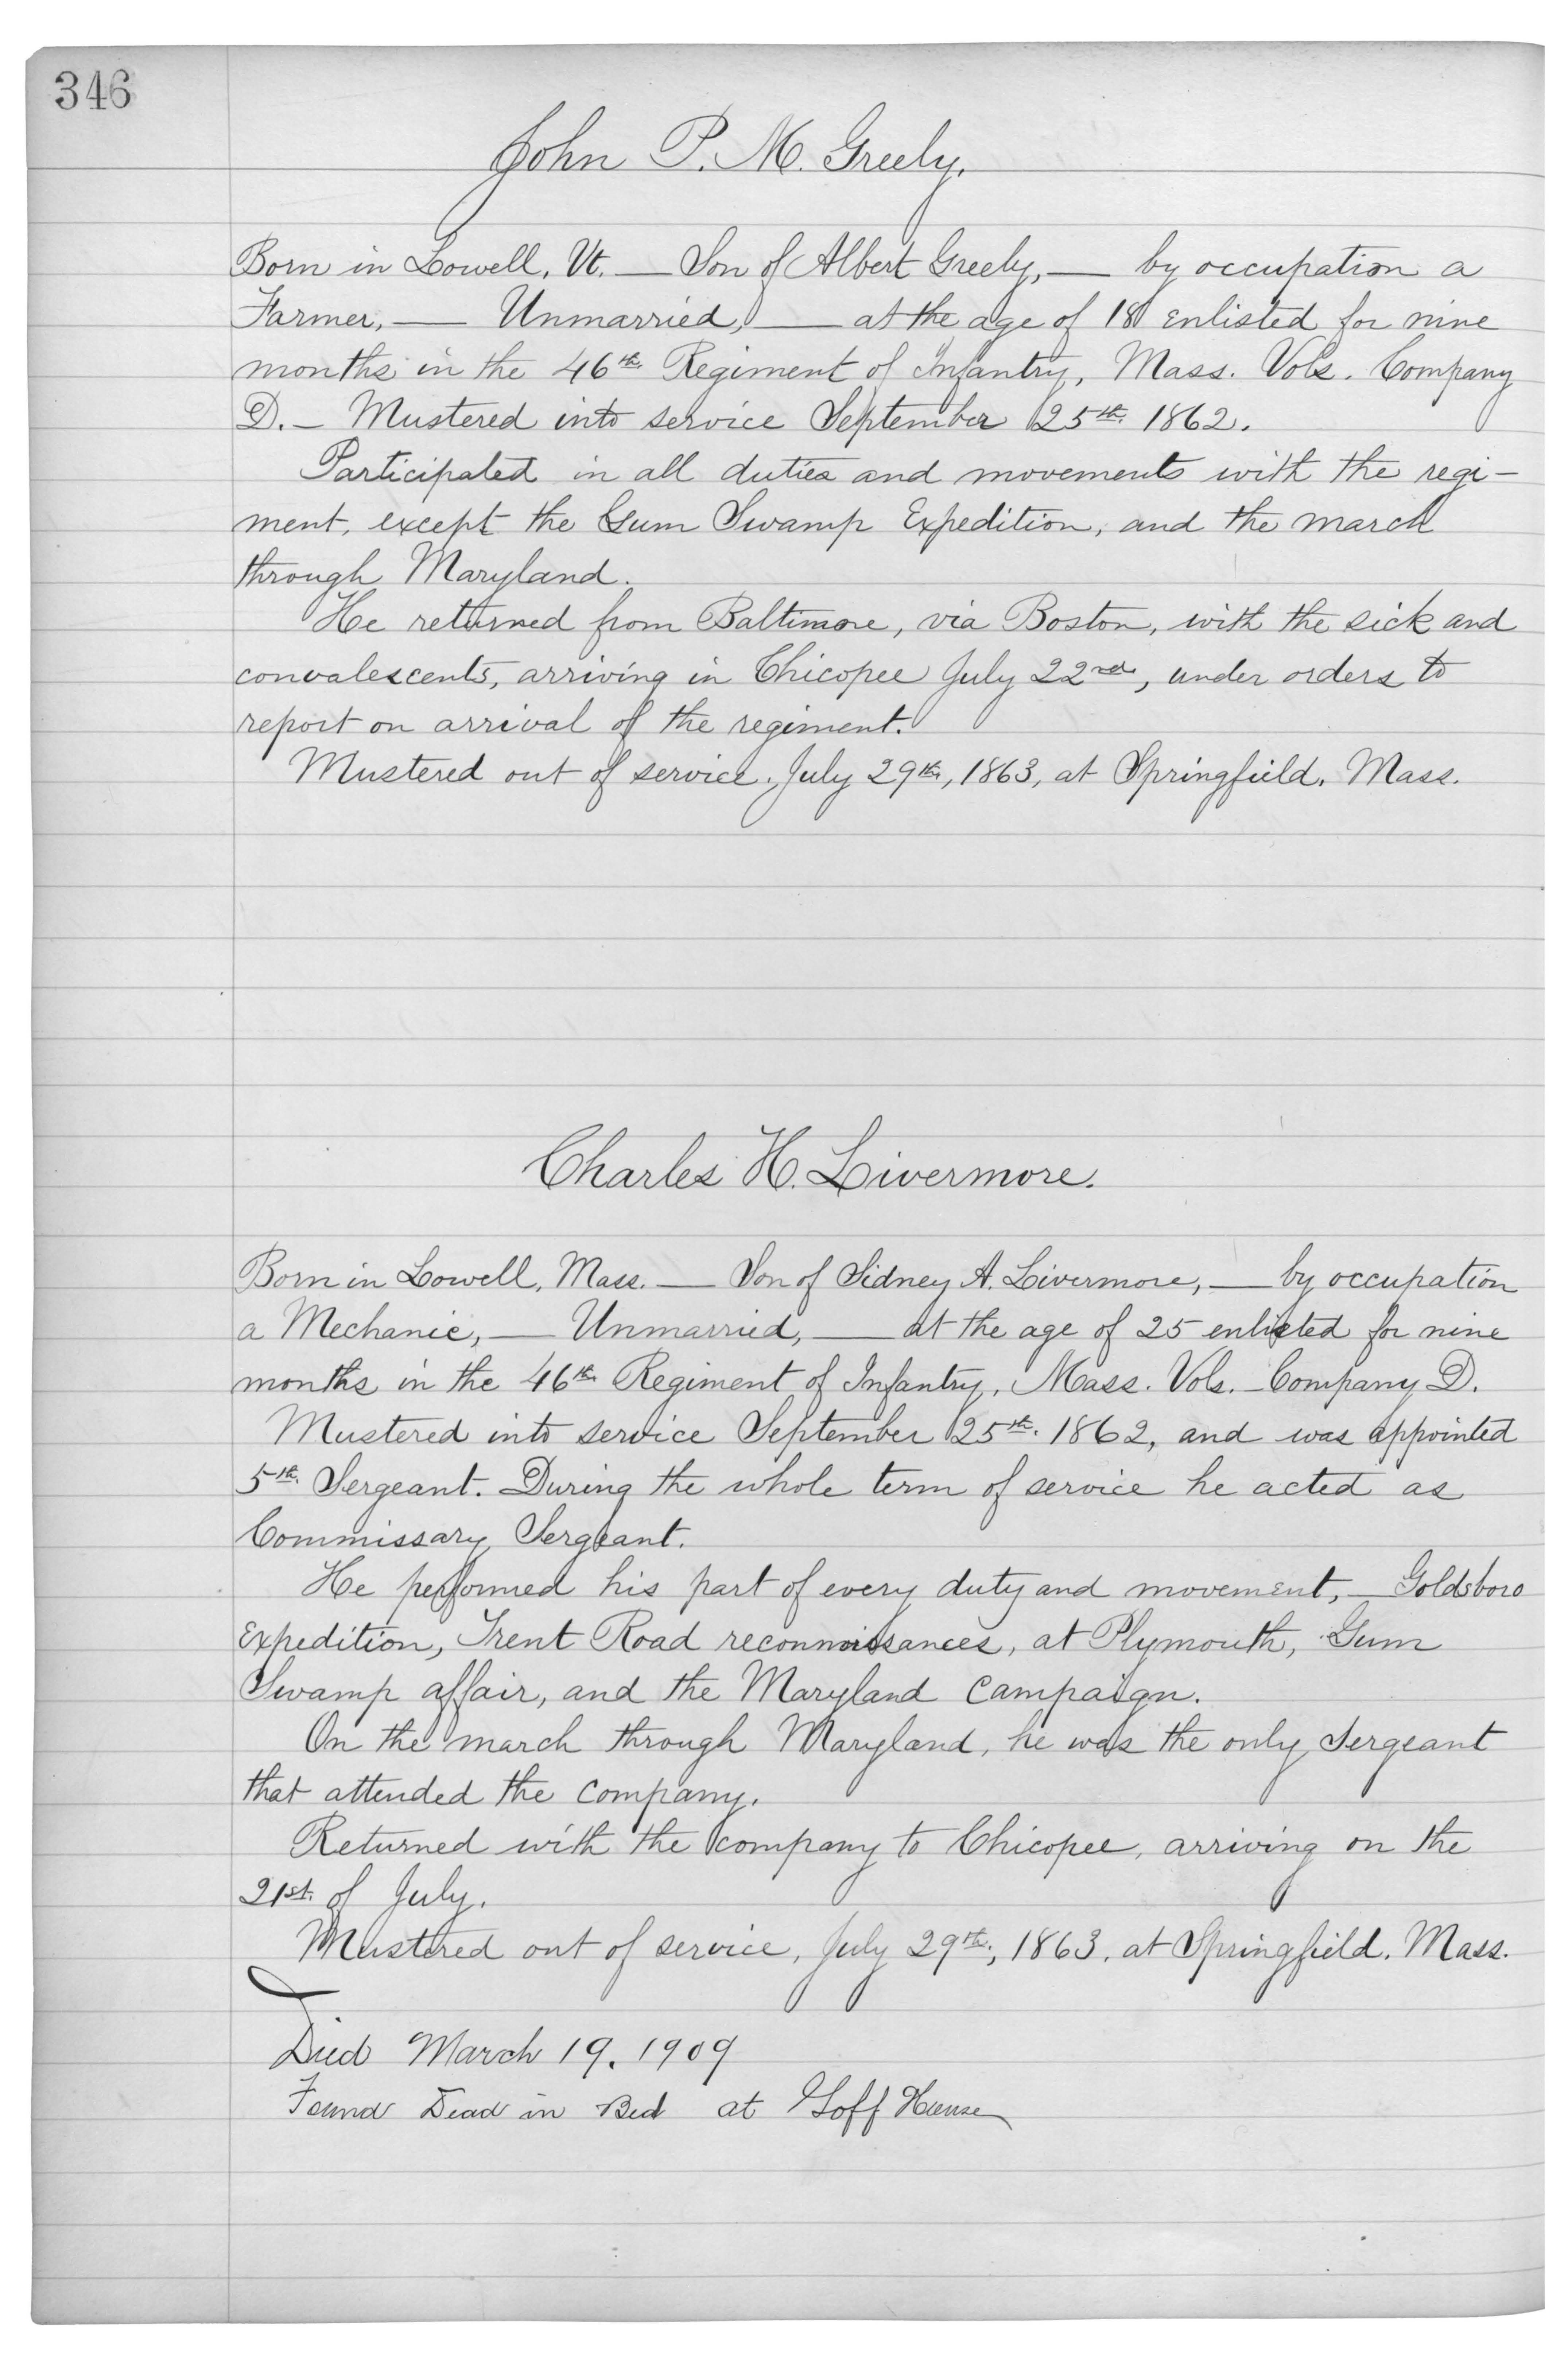 346
John P. M. Greely.
Born in Lowell, Vt. — Son of Albert Greely, — by occupation a
Farmer, — Unmarried, — at the age of 18 enlisted for nine
months in the 46th Regiment of Infantry, Mass. Vols. Company
D. — Mustered into service September 25th 1862.
Participated in all duties and movements with the regi-
ment, except the Gum Swamp Expedition, and the march
through Maryland.
He returned from Baltimore, via Boston, with the sick and
convalescents, arriving in Chicopee July 22nd, under orders to
report on arrival of the regiment.
Mustered out of service, July 29th, 1863, at Springfield, Mass.
Charles H. Livermore.
Born in Lowell, Mass. — Son of Sidney A. Livermore, — by occupation
a Mechanic, — Unmarried, — at the age of 25 enlisted for nine
months in the 46th Regiment of Infantry, Mass. Vols. — Company D.
Mustered into service September 25th 1862, and was appointed
5th Sergeant. During the whole term of service he acted as
Commissary Sergeant.
He performed his part of every duty and movement, — Goldsboro
Expedition, Trent Road reconnoissances, at Plymouth, Gum
Swamp affair, and the Maryland Campaign.
On the march through Maryland, he was the only Sergeant
that attended the Company.
Returned with the company to Chicopee, arriving on the
21st of July.
Mustered out of service, July 29th, 1863, at Springfield, Mass.
Died March 19. 1909
Found Dead in Bed at Goff House